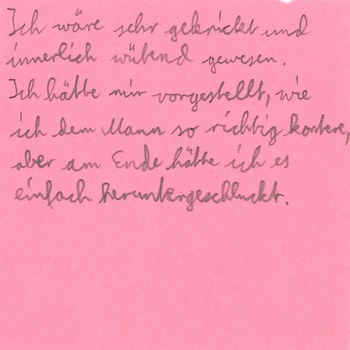 Ich wäre sehr gekrickt und
innerlich wütend gewesen.
Ich hätte mir vorgestellt, wie
ich dem Mann so richtig kontere,
aber am Ende hätte ich es
einfach heruntergeschluckt.